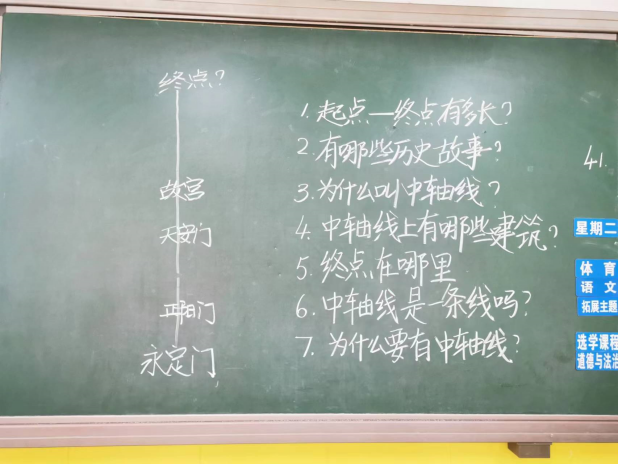 终点？
故宫
天安门
正阳门
永定门
1.起点—终点有多长？
2.有哪些历史故事？
3.为什么叫中轴线？
4.中轴线上有哪些建筑？
5.终点在哪里
6.中轴线是一条线吗？
7.为什么要有中轴线？
41.
星期二
体育
语文
拓展主题
选学课程
道德与法治